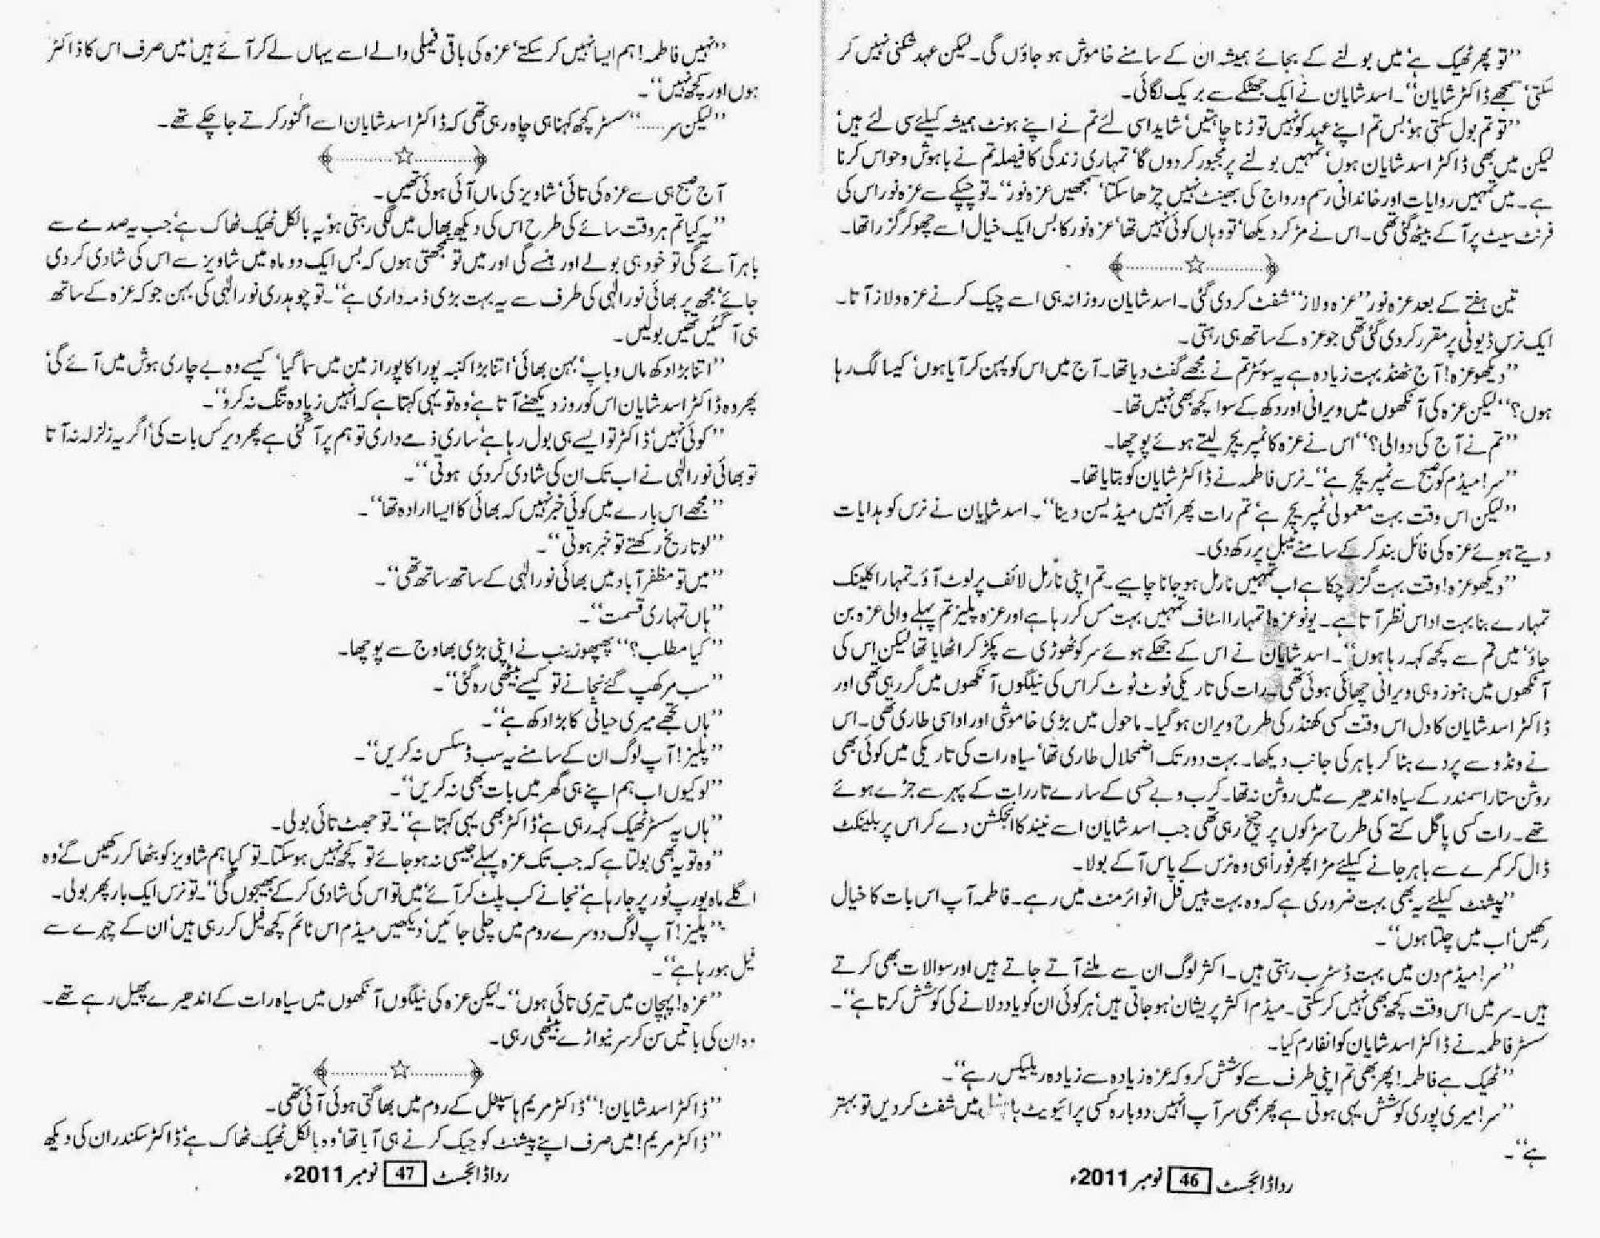 ”تو پھر ٹھیک ہے‘ میں بولنے کے بجائے ہمیشہ ان کے سامنے خاموش ہو جاؤں گی۔ لیکن عہد شکنی نہیں کر
سکتی‘ سمجھے ڈاکٹر شایان“۔ اسد شایان نے ایک جھٹکے سے بریک لگائی۔
”تو تم بول سکتی ہو‘ بس تم اپنے عہد کو نہیں توڑنا چاہتیں‘ شاید اسی لئے تم نے اپنے ہونٹ ہمیشہ کیلئے سی لئے ہیں‘
لیکن میں بھی ڈاکٹر اسد شایان ہوں‘ تمہیں بولنے پر مجبور کر دوں گا‘ تمہاری زندگی کا فیصلہ تم نے باہوش و حواس کرنا
ہے۔ میں تمہیں روایات اور خاندانی رسم و رواج کی بھینٹ نہیں چڑھا سکتا‘ سمجھیں عزہ نور“۔ تو چپکے سے عزہ نور اس کی
فرنٹ سیٹ پر آ کے بیٹھ گئی تھی۔ اس نے مڑ کر دیکھا‘ تو وہاں کوئی نہیں تھا‘ عزہ نور کا بس ایک خیال اسے چھو کر گزرا تھا۔
تین ہفتے کے بعد عزہ نور ”عزہ ولاز“ شفٹ کر دی گئی۔ اسد شایان روزانہ ہی اسے چیک کرنے عزہ ولاز آتا۔
ایک نرس ڈیوٹی پر مقرر کر دی گئی تھی جو عزہ کے ساتھ ہی رہتی۔
”دیکھو عزہ! آج ٹھنڈ بہت زیادہ ہے یہ سوئٹر تم نے مجھے گفٹ دیا تھا۔ آج میں اس کو پہن کر آیا ہوں‘ کیسا لگ رہا
ہوں؟“ لیکن عزہ کی آنکھوں میں ویرانی اور دکھ کے سوا کچھ بھی نہیں تھا۔
”تم نے آج کی دوا لی؟“ اس نے عزہ کا ٹمپریچر لیتے ہوئے پوچھا۔
”سر! میڈم کو صبح سے ٹمپریچر ہے“۔ نرس فاطمہ نے ڈاکٹر شایان کو بتایا تھا۔
”لیکن اس وقت بہت معمولی ٹمپریچر ہے‘ تم رات پھر انہیں میڈیسن دینا“۔ اسد شایان نے نرس کو ہدایات
دیتے ہوئے عزہ کی فائل بند کر کے سامنے ٹیبل پر رکھ دی۔
”دیکھو عزہ! وقت بہت گزر چکا ہے اب تمہیں نارمل ہو جانا چاہیے۔ تم اپنی نارمل لائف پر لوٹ آؤ۔ تمہارا کلینک
تمہارے بنا بہت اداس نظر آتا ہے۔ یو نو عزہ! تمہارا اسٹاف تمہیں بہت مس کر رہا ہے اور عزہ پلیز تم پہلے والی عزہ بن
جاؤ‘ میں تم سے کچھ کہہ رہا ہوں“۔ اسد شایان نے اس کے جھکے ہوئے سر کو ٹھوڑی سے پکڑ کر اٹھایا تھا لیکن اس کی
آنکھوں میں ہنوز وہی ویرانی چھائی ہوئی تھی۔ رات کی تاریکی ٹوٹ ٹوٹ کر اس کی نیلگوں آنکھوں میں گر رہی تھی اور
ڈاکٹر اسد شایان کا دل اس وقت کسی کھنڈر کی طرح ویران ہو گیا۔ ماحول میں بڑی خاموشی اور اداسی طاری تھی۔ اس
نے ونڈو سے پردے ہٹا کر باہر کی جانب دیکھا۔ بہت دور تک اضمحلال طاری تھا‘ سیاہ رات کی تاریکی میں کوئی بھی
روشن ستارا سمندر کے سیاہ اندھیرے میں روشن نہ تھا۔ کرب و بے حسی کے سارے تار رات کے پہر سے جڑے ہوئے
تھے۔ رات کسی پاگل کتے کی طرح سڑکوں پر چیخ رہی تھی جب اسد شایان اسے نیند کا انجکشن دے کر اس پر بلینکٹ
ڈال کر کمرے سے باہر جانے کیلئے مڑا پھر فوراً ہی وہ نرس کے پاس آ کے بولا۔
”پیشنٹ کیلئے یہ بھی بہت ضروری ہے کہ وہ بہت پیس فل انوائرمنٹ میں رہے۔ فاطمہ آپ اس بات کا خیال
رکھیں‘ اب میں چلتا ہوں“۔
”سر! میڈم دن میں بہت ڈسٹرب رہتی ہیں۔ اکثر لوگ ان سے ملنے آتے جاتے ہیں اور سوالات بھی کرتے
ہیں۔ سر میں اس وقت کچھ بھی نہیں کر سکتی۔ میڈم اکثر پریشان ہو جاتی ہیں‘ ہر کوئی ان کو یاد دلانے کی کوشش کرتا ہے“۔
سسٹر فاطمہ نے ڈاکٹر اسد شایان کو انفارم کیا۔
”ٹھیک ہے فاطمہ! پھر بھی تم اپنی طرف سے کوشش کرو کہ عزہ زیادہ سے زیادہ ریلیکس رہے“۔
”سر! میری پوری کوشش یہی ہوتی ہے پھر بھی سر آپ انہیں دوبارہ کسی پرائیویٹ میں شفٹ کر دیں تو بہتر
ہے“۔
رداڈائجسٹ 46 نومبر 2011ء
”نہیں فاطمہ! ہم ایسا نہیں کر سکتے‘ عزہ کی باقی فیملی والے اسے یہاں لے کر آئے ہیں‘ میں صرف اس کا ڈاکٹر
ہوں اور کچھ نہیں“۔
”لیکن سر.....“ سسٹر کچھ کہنا ہی چاہ رہی تھی کہ ڈاکٹر اسد شایان اسے اگنور کرتے جا چکے تھے۔
آج صبح ہی سے عزہ کی تائی‘ شاویز کی ماں آئی ہوئی تھیں۔
”یہ کیا تم ہر وقت سائے کی طرح اس کی دیکھ بھال میں لگی رہتی ہو‘ یہ بالکل ٹھیک ٹھاک ہے‘ جب یہ صدمے سے
باہر آئے گی تو خود ہی بولے اور ہنسے گی اور میں تو سمجھتی ہوں کہ بس ایک دو ماہ میں شاویز سے اس کی شادی کر دی
جائے‘ مجھ پر بھائی نور الٰہی کی طرف سے یہ بہت بڑی ذمہ داری ہے“۔ تو چوہدری نور الٰہی کی بہن جو کہ عزہ کے ساتھ
ہی آ گئیں تھیں بولیں۔
”اتنا بڑا دکھ ماں و باپ‘ بہن بھائی‘ اتنا بڑا کنبہ پورا کا پورا زمین میں سما گیا‘ کیسے وہ بے چاری ہوش میں آئے گی‘
پھر وہ ڈاکٹر اسد شایان اس کو روز دیکھنے آتا ہے‘ وہ تو یہی کہتا ہے کہ انہیں زیادہ تنگ نہ کرو“۔
”کوئی نہیں‘ ڈاکٹر تو ایسے ہی بول رہا ہے‘ ساری ذمے داری تو ہم پر آ گئی ہے پھر دیر کس بات کی‘ اگر یہ زلزلہ نہ آتا
تو بھائی نور الٰہی نے اب تک ان کی شادی کر دی ہوتی“۔
”مجھے اس بارے میں کوئی خبر نہیں کہ بھائی کا ایسا ارادہ تھا“۔
”لو تاریخ رکھتے تو خبر ہوتی“۔
”میں تو مظفر آباد میں بھائی نور الٰہی کے ساتھ ساتھ تھی“۔
”ہاں تمہاری قسمت“۔
”کیا مطلب؟“ پھپھو زینب نے اپنی بڑی بھاوج سے پوچھا۔
”سب مر کھپ گئے نجانے تو کیسے بیٹھی رہ گئی“۔
”ہاں تجھے میری حیاتی کا بڑا دکھ ہے“۔
”پلیز! آپ لوگ ان کے سامنے یہ سب ڈسکس نہ کریں“۔
”لو کیوں اب ہم اپنے ہی گھر میں بات بھی نہ کریں“۔
”ہاں یہ سسٹر ٹھیک کہہ رہی ہے‘ ڈاکٹر بھی یہی کہتا ہے“۔ تو جھٹ تائی بولی۔
”وہ تو یہ بھی بولتا ہے کہ جب تک عزہ پہلے جیسی نہ ہو جائے تو کچھ نہیں ہو سکتا۔ تو کیا ہم شاویز کو بٹھا کر رکھیں گے‘ وہ
اگلے ماہ یورپ ٹور پر جا رہا ہے‘ نجانے کب پلٹ کر آئے‘ میں تو اس کی شادی کر کے بھیجوں گی“۔ تو نرس ایک بار پھر بولی۔
”پلیز! آپ لوگ دوسرے روم میں چلی جائیں‘ دیکھیں میڈم اس ٹائم کچھ فیل کر رہی ہیں‘ ان کے چہرے سے
فیل ہو رہا ہے“۔
”عزہ! پہچان میں تیری تائی ہوں“۔ لیکن عزہ کی نیلگوں آنکھوں میں سیاہ رات کے اندھیرے پھیل رہے تھے۔
وہ ان کی باتیں سن کر سر نیواڑے بیٹھی رہی۔
”ڈاکٹر اسد شایان!“ ڈاکٹر مریم ہاسپٹل کے روم میں بھاگتی ہوئی آئی تھی۔
”ڈاکٹر مریم! میں صرف اپنے پیشنٹ کو چیک کرنے ہی آیا تھا‘ وہ بالکل ٹھیک ٹھاک ہے‘ ڈاکٹر سکندر ان کی دیکھ
رداڈائجسٹ 47 نومبر 2011ء